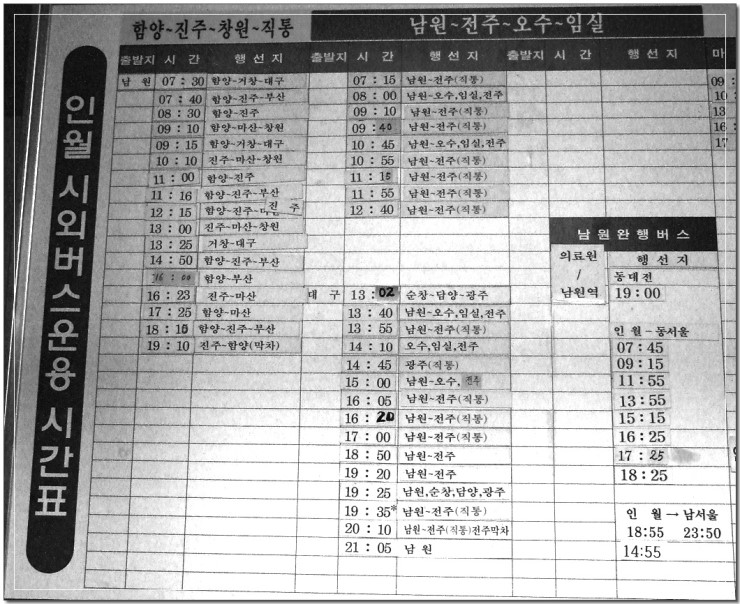 인월 시외버스운용 시간표
함양~진주~창원~직통
출발지 시 간 행 선 지
남 원 07 : 30 함양~거창~대구
07 : 40 함양~진주~부산
08 : 30 함양~진주
09 : 10 함양~마산~창원
09 : 15 함양~거창~대구
10 : 10 진주~마산~창원
11 : 00 함양~진주
11 : 16 함양~진주~부산
12 : 15 함양~진주~ 진 주
13 : 00 진주~마산~창원
13 : 25 거창~대구
14 : 50 함양~진주~부산
16 : 00 함양~부산
16 : 23 진주~마산
17 : 25 함양~마산
18 : 15 함양~진주~부산
19 : 10 진주~함양(막차)
남원~전주~오수~임실
출발지 시 간 행 선 지
07 : 15 남원~전주(직통)
08 : 00 남원~오수,임실,전주
09 : 10 남원~전주(직통)
09 : 40 남원~전주(직통)
10 : 45 남원~오수,임실,전주
10 : 55 남원~전주(직통)
11 : 15 남원~전주(직통)
11 : 55 남원~전주(직통)
12 : 40 남원~전주(직통)
대 구 13 : 02 순창~담양~광주
13 : 40 남원~오수,임실,전주
13 : 55 남원~전주(직통)
14 : 10 오수,임실,전주
14 : 45 광주(직통)
15 : 00 남원~오수, 전주
16 : 05 남원~전주(직통)
16 : 20 남원~전주(직통)
17 : 00 남원~전주(직통)
18 : 50 남원~전주
19 : 20 남원~전주
19 : 25 남원,순창,담양,광주
19 : 35* 남원~전주(직통)
20 : 10 남원~전주(직통)전주막차
21 : 05 남 원
출발지 시 간 행 선 지
남원완행버스
의료원 / 남원역
행 선 지
동대전
19 : 00
인 월 ~ 동서울
07 : 45
09 : 15
11 : 55
13 : 55
15 : 15
16 : 25
17 : 25
18 : 25
인 월 → 남서울
18:55 23:50
14:55
마
09 :
10 :
13
16
17